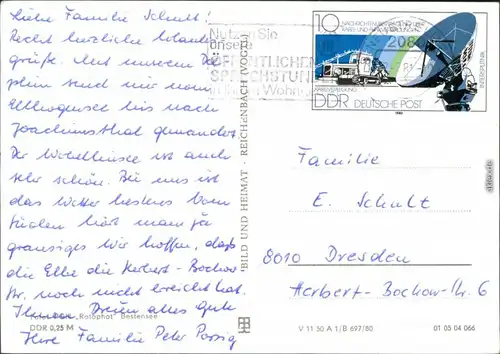 Liebe Familie Schult!
Recht herzliche Urlaubs-
grüße. Mit unserem
sind wir vom
bis nach
Joachimsthal gewandert.
Der Werbellinsee ist auch
sehr schön. Bei uns ist
das Wetter bestens. Vom
Süden hört man ja
grausiges. Wir hoffen, daß
die Elbe die Herbert-Bochow-
Str. noch nicht erreicht hat.
Ihnen Dreien alles Gute
Ihre Familie Peter
"Rotophot" Bestensee
DDR 0,25 M
BILD UND HEIMAT · REICHENBACH (VOGTL)
Nutzen Sie
unsere
ÖFFENTLICHEN
SPRECHSTUNDEN
10
DDR
DEUTSCHE POST
INTERSPUTNIK
1980
208
Familie
E. Schult
8010 Dresden
Herbert-Bochow-Str. 6
V 11 50 A 1/B 697/80
01 05 04 066